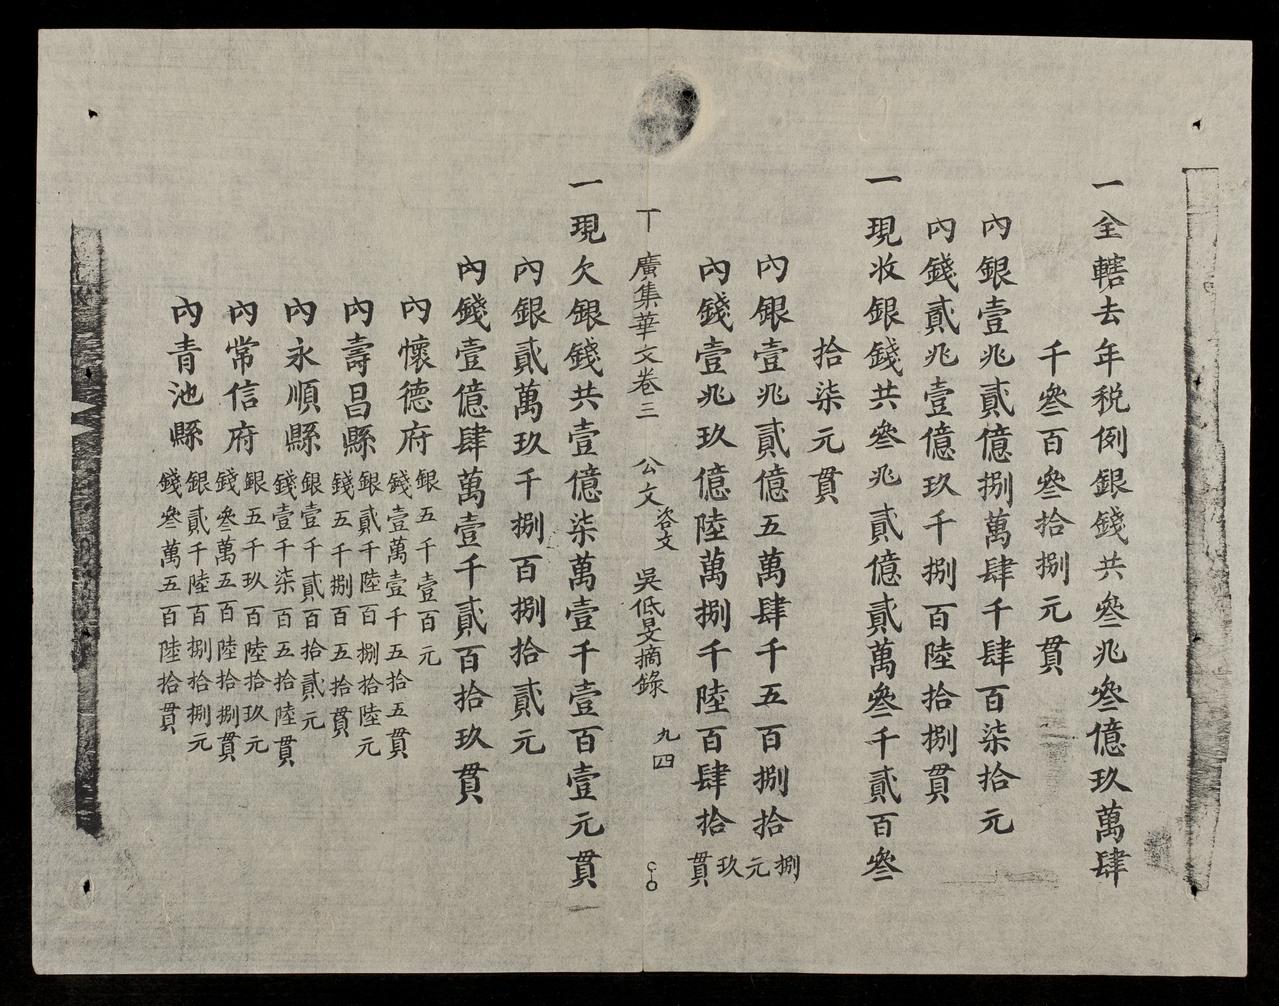 一全轄去年税例銀錢共叄兆叄億玖萬肆
千叄百叄拾捌元貫
內銀壹兆貳億捌萬肆千肆百柒拾元
內錢貳兆壹億玖千捌百陸拾捌貫
一現收銀錢共叄兆貳億貳萬叄千貳百叄
拾柒元貫
內銀壹兆貳億五萬肆千五百捌拾捌元
內錢壹兆玖億陸萬捌千陸百肆拾玖貫
丅廣集華文卷三 公文 咨文 吳低旻摘錄 九四
一現欠銀錢共壹億柒萬壹千壹百壹元貫
內銀貳萬玖千捌百捌拾貳元
內錢壹億肆萬壹千貳百拾玖貫
內懷德府 銀五千壹百元 錢壹萬壹千五拾五貫
內壽昌縣 銀貳千陸百捌拾陸元 錢五千捌百五拾貫
內永順縣 銀壹千貳百拾貳元 錢壹千柒百五拾陸貫
內常信府 銀五千玖百陸拾玖元 錢叄萬五百陸拾捌貫
內青池縣 銀貳千陸百捌拾捌元 錢叄萬五百陸拾貫